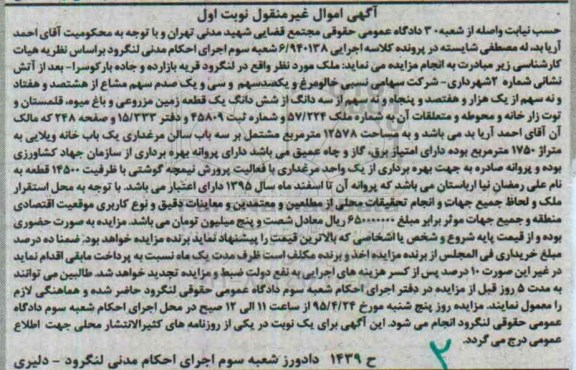 آگهی اموال غیرمنقول نوبت اول
حسب نیابت واصله از شعبه ۳۰ دادگاه عمومی حقوقی مجتمع قضایی شهید مدنی تهران و با توجه به محکومیت آقای احمد
آریا بد، له مصطفی شایسته در پرونده کلاسه اجرایی ۶/۹۴۰۱۳۸ شعبه سوم اجرای احکام مدنی لنگرود براساس نظریه هیات
کارشناسی زیر مبادرت به انجام مزایده می نماید: ملک مورد نظر واقع در لنگرود قریه بازارده و جاده بارکوسرا- بعد از آتش
نشانی شماره ۲شهرداری- شرکت سهامی سی خالومرغ و یکصدسهم و سی و یک صدم سهم مشاع از هشتصد و هفتاد
و نه سهم از یک هزار و هفتصد و پنجاه و نه سهم از سه دانگ از شش دانگ یک قطعه زمین مزروعی و باغ میوه، قلمستان و
توت زار خانه و محوطه و متعلقات آن به شماره ملک ۵۷/۲۲۴ و شماره ثبت ۴۵۸۰۹ و دفتر ۱۵/۳۳۳ و صفحه ۲۴۸ که مالک
آن آقای احمد آریا بد می باشد و به مساحت ۱۲۵۷۸ مترمربع مشتمل بر سه باب سالن مرغداری یک باب خانه ویلایی به
متراژ ۱۷۵۰ مترمربع بوده دارای امتیاز برق، گاز و چاه عمیق می باشد دارای پروانه بهره برداری از سازمان جهاد کشاورزی
بوده و پروانه صادره به جهت بهره برداری از یک واحد مرغداری با فعالیت پرورش نیمچه گوشتی با ظرفیت ۱۴۵۰۰ قطعه به
نام علی رمضان نیا ارباستان می باشد که پروانه آن تا اسفند ماه سال ۱۳۹۵ دارای اعتبار می باشد. با توجه به محل استقرار
ملک و لحاظ جمیع جهات و انجام تحقیقات محلی از مطلعین و معتمدین و معاینات دقیق و نوع کاربری موقعیت اقتصادی
منطقه و جمیع جهات موثر برابر مبلغ ۶۵۰۰۰۰۰۰۰۰ ریال معادل شصت و پنج میلیون تومان می باشد. مزایده به صورت حضوری
بوده و از قیمت پایه شروع و شخص یا اشخاصی که بالاترین قیمت را پیشنهاد نماید برنده مزایده خواهد بود. ضمنا ده درصد
مبلغ خریداری فی المجلس از برنده مزایده اخذ و برنده مکلف است ظرف مدت یک ماه نسبت به پرداخت مابقی اقدام نماید
در غیر این صورت ۱۰ درصد پس از کسر هزینه های اجرایی به نفع دولت ضبط و مزایده تجدید خواهد شد. طالبین می توانند
به مدت ۵ روز قبل از مزایده در دفتر اجرای احکام شعبه سوم دادگاه عمومی حقوقی لنگرود حاضر شده و هماهنگی لازم
را معمول نمایند. مزایده روز پنج شنبه مورخ ۹۵/۴/۲۴ از ساعت ۱۱ الی ۱۲ صبح در محل اجرای احکام شعبه سوم دادگاه
عمومی حقوقی لنگرود انجام می شود. این آگهی برای یک نوبت در یکی از روزنامه های کثیرالانتشار محلی جهت اطلاع
عمومی درج می گردد.
ح ۱۴۳۹ دادورز شعبه سوم اجرای احکام مدنی لنگرود - دلیری
۲